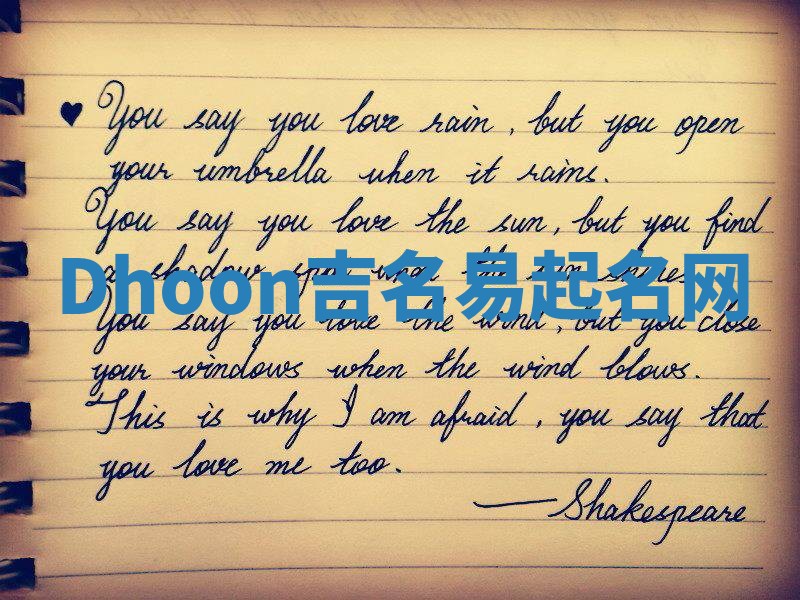 You say you love rain, but you open
your umbrella when it rains.
You say you love the sun, but you find
a shadow spot when the sun shines.
Dhoon吉名易起名网
You say you love the wind, but you close
your windows when the wind blows.
This is why I am afraid, you say that
you love me too.
—Shakespeare